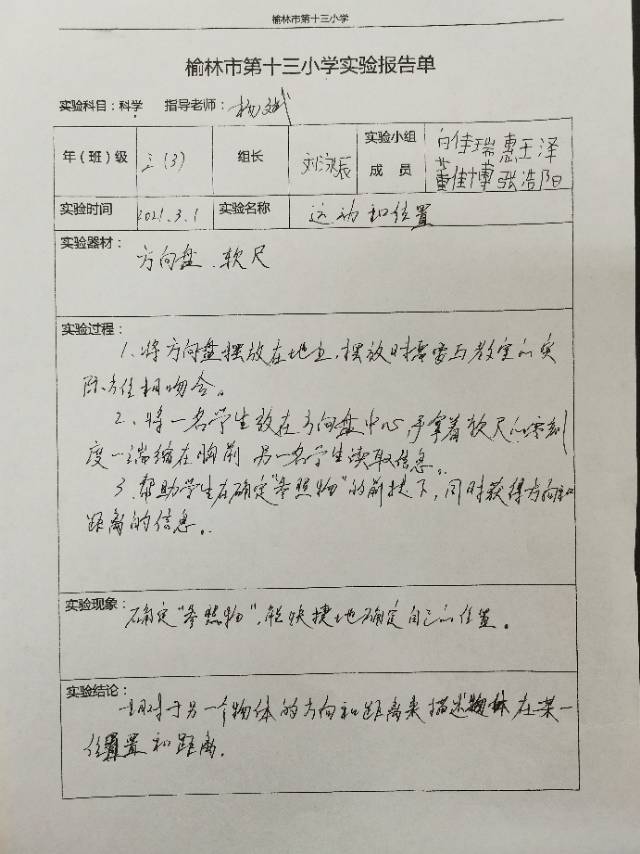 榆林市第十三小学
榆林市第十三小学实验报告单
实验科目：科学 指导老师：杨斌
年（班）级 三（3） 组长 刘泳辰 实验小组成员 向佳瑞 惠王泽
董佳博 张浩阳
实验时间 2021.3.1 实验名称 运动和位置
实验器材：
方向盘、软尺
实验过程：
1、将方向盘摆放在地上，摆放时需要与教室的实
际方位相吻合。
2、将一名学生放在方向盘中心，手拿着软尺的零刻
度一端缩在胸前 另一名学生读取信息。
3、帮助学生在确定“参照物”的前提下，同时获得方向和
距离的信息。
实验现象：
确定“参照物”，能快捷地确定自己的位置。
实验结论：
相对于另一个物体的方向和距离来描述物体在某一
位置和距离.